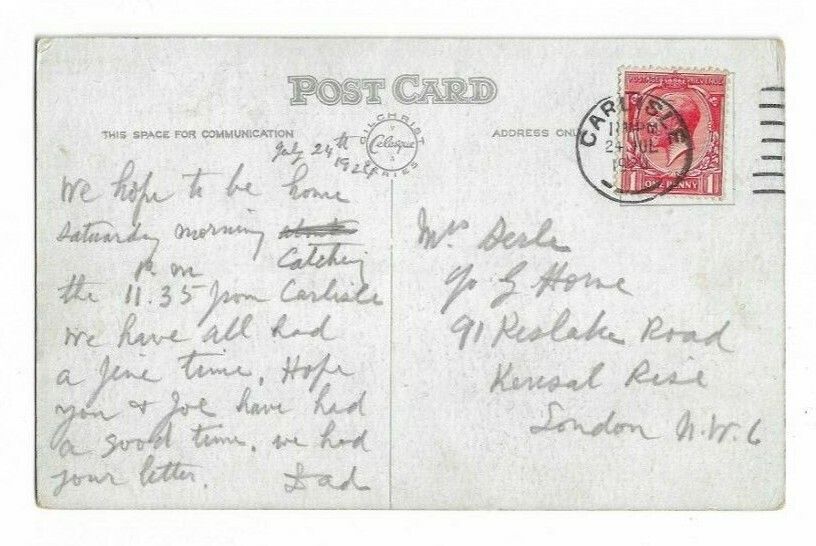 POST CARD
THIS SPACE FOR COMMUNICATION
ADDRESS ONLY
GILCHRIST
Celesque
SERIES
CARLISLE
24 JUL
POSTAGE REVENUE
ONE PENNY
1 1
July 24th
1924
We hope to be home
Saturday morning
Catching
pm
the 11.35 from Carlisle
We have all had
a fine time. Hope
you & Joe have had
a good time, we had
your letter.
Dad
Mrs
c/o G Horne
91 Keslake Road
Kensal Rise
London N.W.6